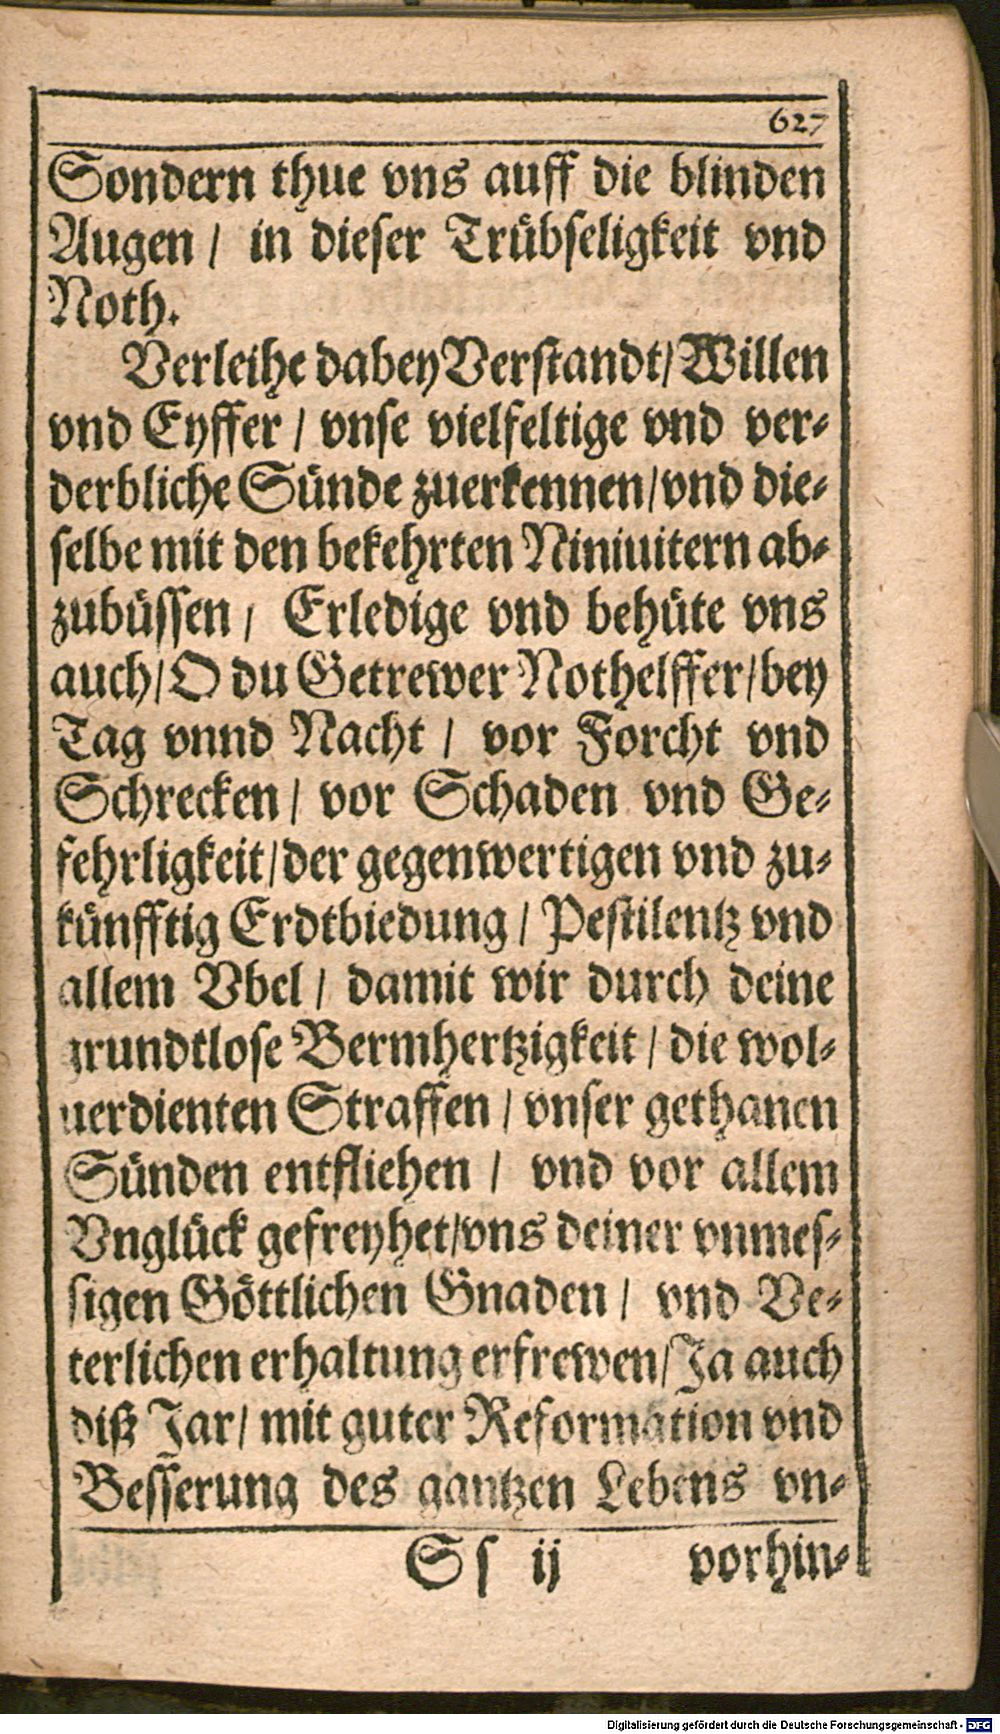 627
Sondern thue vns auff die blinden
Augen / in dieser Trübseligkeit vnd
Noth.
Verleihe dabey Verstandt / Willen
vnd Eyffer / vnse vielfeltige vnd ver-
derbliche Sünde zuerkennen / vnd die-
selbe mit den bekehrten Niniuitern ab-
zubüssen / Erledige vnd behüte vns
auch / O du Getrewer Nothelffer / bey
Tag vnnd Nacht / vor Forcht vnd
Schrecken / vor Schaden vnd Ge-
fehrligkeit / der gegenwertigen vnd zu-
künfftig Erdtbiedung / Pestilentz vnd
allem Vbel / damit wir durch deine
grundtlose Bermhertzigkeit / die wol-
uerdienten Straffen / vnser gethanen
Sünden entfliehen / vnd vor allem
Vnglück gefreyhet / vns deiner vnmes-
sigen Göttlichen Gnaden / vnd Ve-
terlichen erhaltung erfrewen / Ja auch
diß Jar / mit guter Reformation vnd
Besserung des gantzen Lebens vn-
Ss ij vorhin-
Digitalisierung gefördert durch die Deutsche Forschungsgemeinschaft - DFG